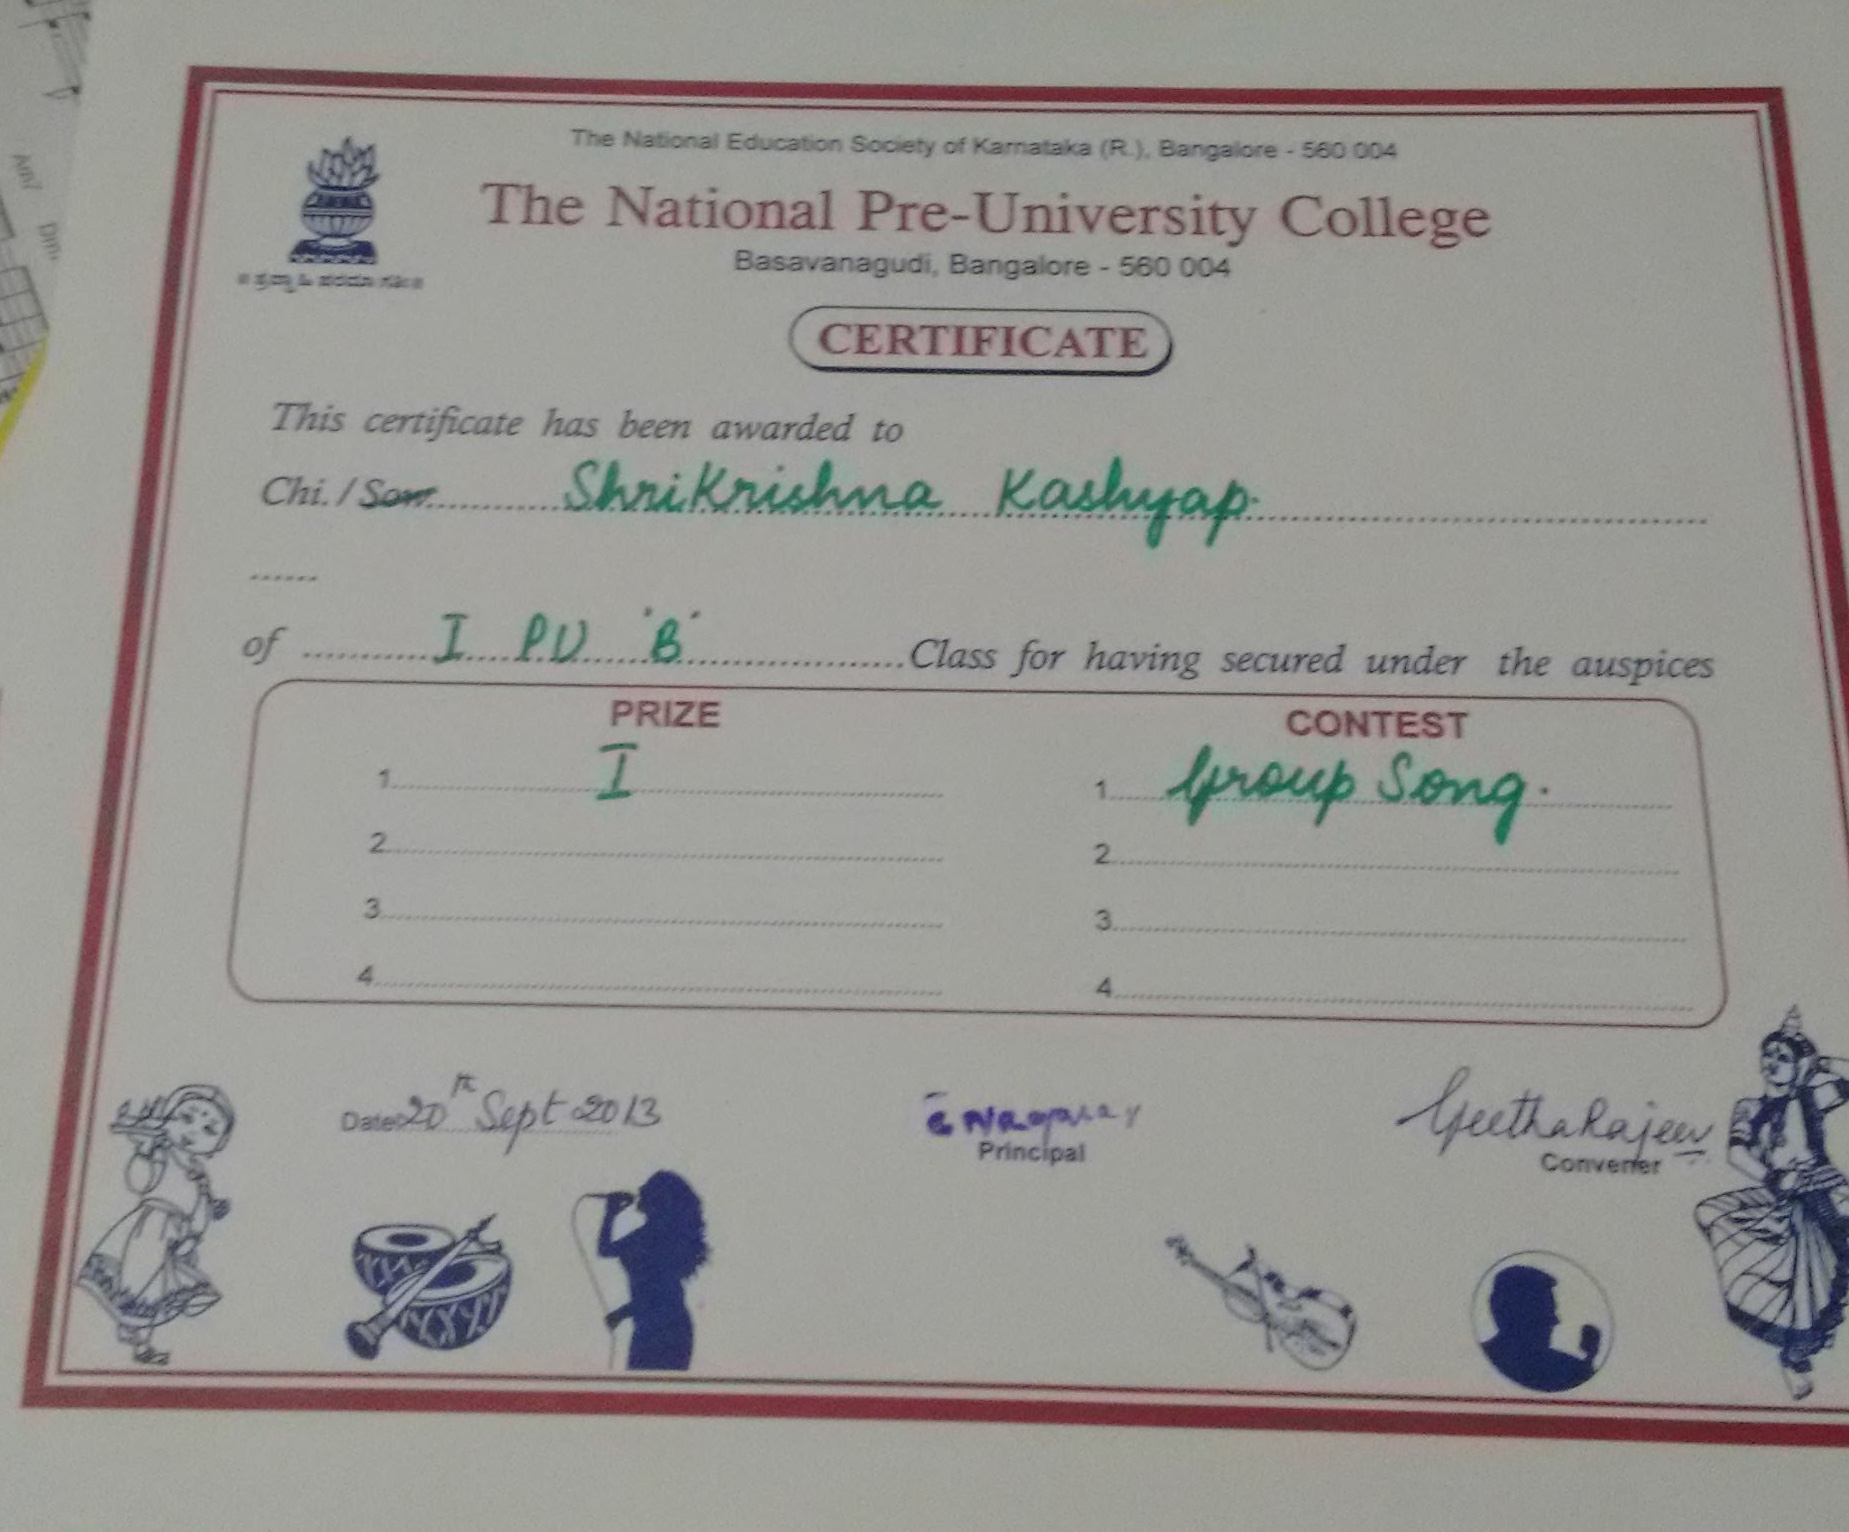 The National Education Society of Karnataka (R.), Bangalore - 560 004
The National Pre-University College
Basavanagudi, Bangalore - 560 004
CERTIFICATE
This certificate has been awarded to
Chi./Sow. ShriKrishna Kashyap.
of I PU 'B' Class for having secured under the auspices
PRIZE CONTEST
1. I 1. Group Song.
2. 2.
3. 3.
4. 4.
Date: 20th Sept 2013
Principal
Geetha Rajeev
Convener